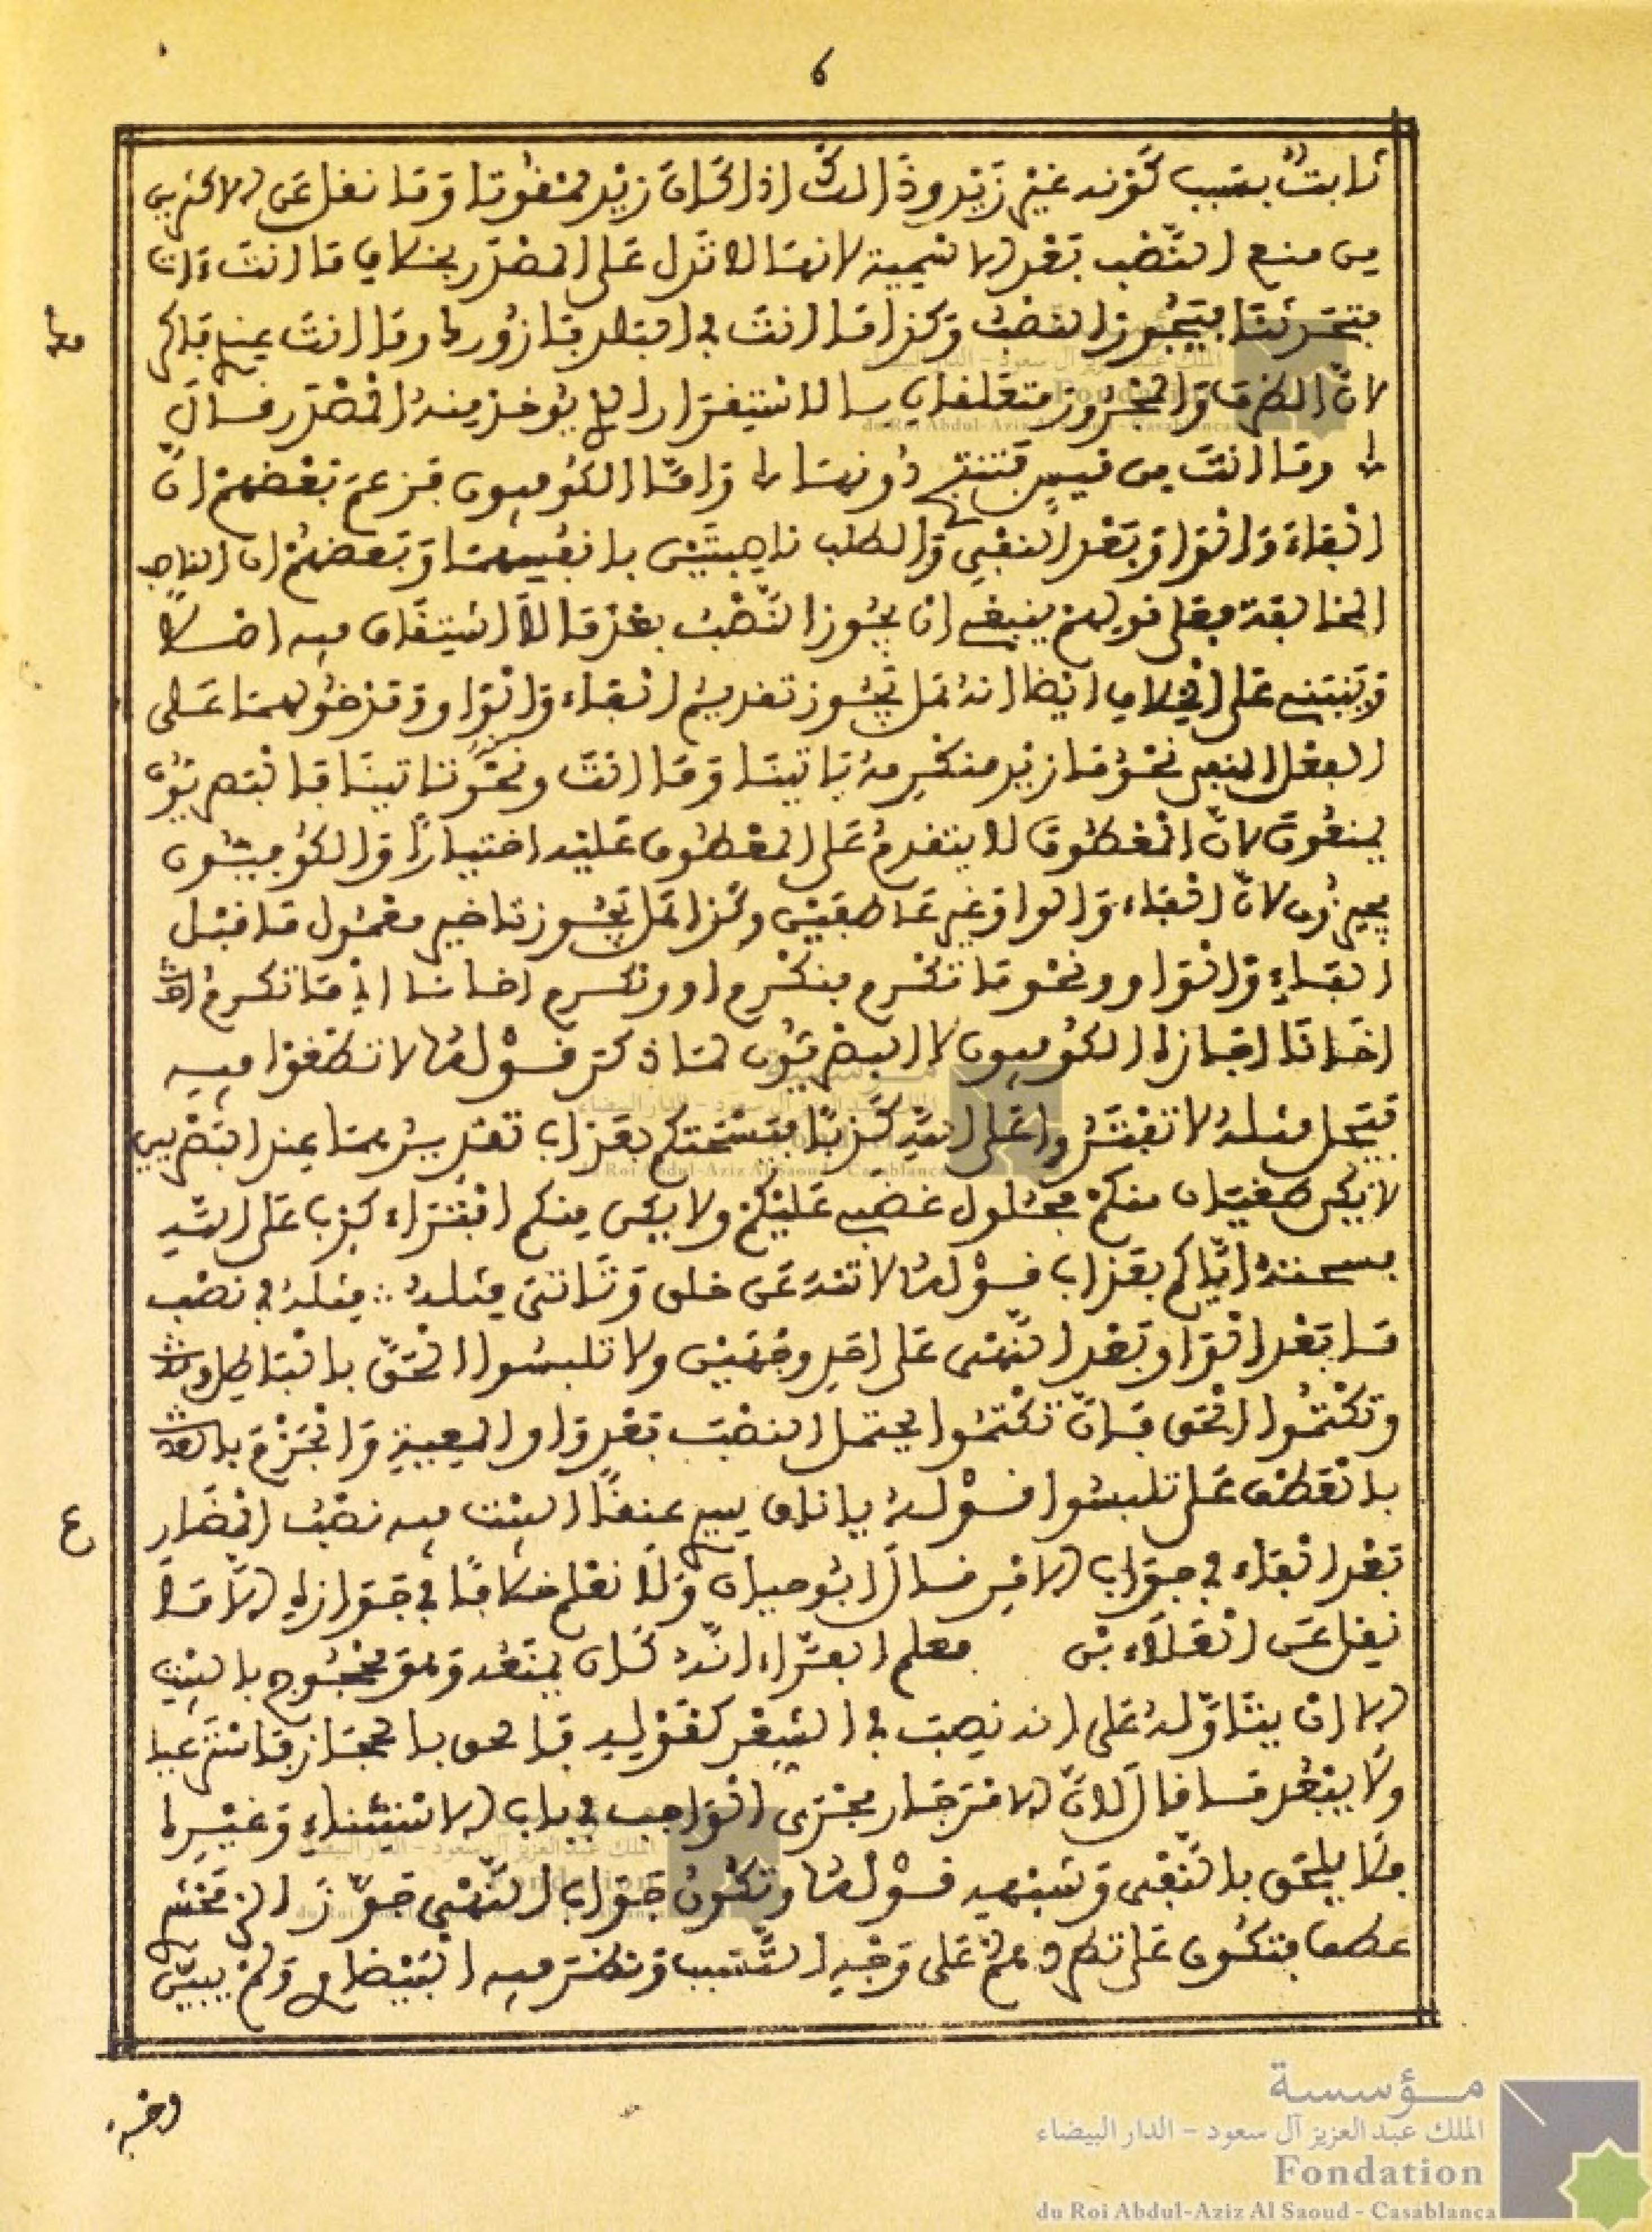 6
ثابت بسبب كونه غير زيد وذالك اذا كان زيد مفقودا وما نقل عن الاكثرين
من منع النصب بعد الاسمية لانها لا تدل على المصدر بخلاف ما انت ءات
فتحدثنا فيجوز النصب وكذا ما انت في البلد فنزورك وما انت عندنا
لان الظرف والمجرور متعلقان بالاستقرار الذي يوخذ منه المصدر قال
وما انت من قيس دونها واما الكوفيون فزعم بعضهم ان
الفاء والواو بعد النفي والطلب ناصبتين بانفسهما وبعضهم ان الناصب
المخالفة فعلى قولهم ينبغي ان يجوز النصب بعد ما لا اشتقاق فيه اصلا
وينبني على الخلاف ايضا انه هل يجوز تقديم الفاء والواو ومدخولهما على
الفعل المنفي نحو ما زيد فنكرمه ياتينا وما انت ونحو تاتينا فالبصريون
يمنعون لان المعطوف لا يتقدم على المعطوف عليه اختيارا والكوفيون
يجيزون لان الفاء والواو غير عاطفتين وكذا هل يجوز تاخير معمول ما قبل
الفاء والواو ونحو ما تكرم فنكرم او ونكرم اخانا اي ما تكرم
اخانا اجازه الكوفيون لا البصريون لما ذكر قوله لا تطغوا فيه
فيحل مثله لا تفتروا على الله كذبا فيسحتكم بعذاب تقديرهما عند البصريين
لا يكن طغيان منكم فحلول غضب عليكم ولا يكن منكم افتراء كذب على الله
فسحته اياكم بعذاب قوله لا تنه عن خلق وتاتي مثله ∴ مثله في نصب
ما بعد الواو بعد النهي على احد وجهين ولا تلبسوا الحق بالباطل
وتكتموا الحق فان تكتموا يحتمل النصب بعد واو المعية والجزم
بالعطف على تلبسوا قوله يا ناق سيري عنقا البيت فيه نصب المضارع
بعد الفاء في جواب الامر قال ابو حيان ولا نعلم خلافا في جوازه الا ما
نقل عن العلاء بن معلم الفراء انه كان يمنعه وهو محجوج بالبيت
الا ان يتاوله على انه نصب في الشعر كقوله والحق بالحجاز فاستريحا
ولا يبعد ما قال لان الامر جار مجرى الواجب في باب الاستثناء وغيره
فلا يلحق بالنفي وشبهه قوله وتكون جواب النهي جوز الزمخشري
عطف فتكون على تطردهم على وجه التسبب ونظر فيه البيضاوي ولم يبين
وجه
ع
مؤسسة
الملك عبد العزيز آل سعود - الدار البيضاء
Fondation
du Roi Abdul-Aziz Al Saoud - Casablanca